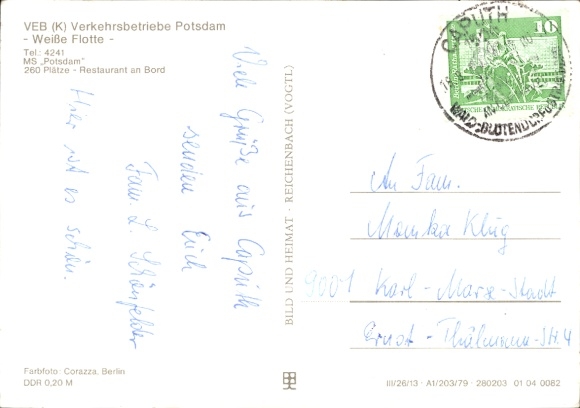 VEB (K) Verkehrsbetriebe Potsdam
- Weiße Flotte -
Tel.: 4241
MS „Potsdam"
260 Plätze - Restaurant an Bord
Viele Grüße aus Caputh
senden Euch
Fam. L. Schönfelder
Hier ist es schön.
Farbfoto: Corazza, Berlin
DDR 0,20 M
BILD UND HEIMAT · REICHENBACH (VOGTL)
CAPUTH
10
An Fam.
Monika Klug
9001 Karl-Marx-Stadt
Ernst-Thälmann-Str. 4
III/26/13 · A1/203/79 · 280203 01 04 0082